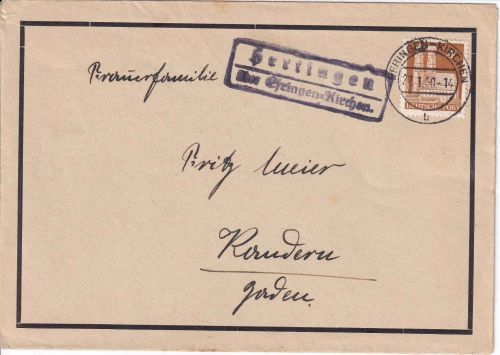 Hertingen
über Efringen-Kirchen.
EFRINGEN-KIRCHEN
1.50-14
b
DEUTSCHE POST
Trauerfamilie
Fritz Meier
Kandern
Baden.